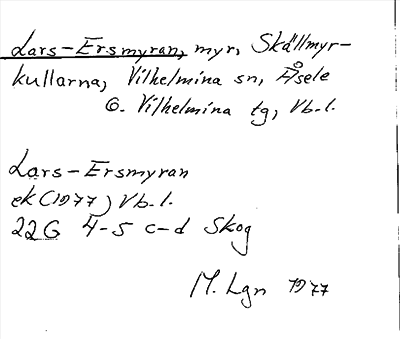 Lars-Ersmyran, myr, Skällmyr-
kullarna, Vilhelmina sn, Åsele
6. Vilhelmina tg, Vb.l.
Lars-Ersmyran
ek (1977) Vb.l.
22G 4-5 c-d Skog
M. Lgn 1977